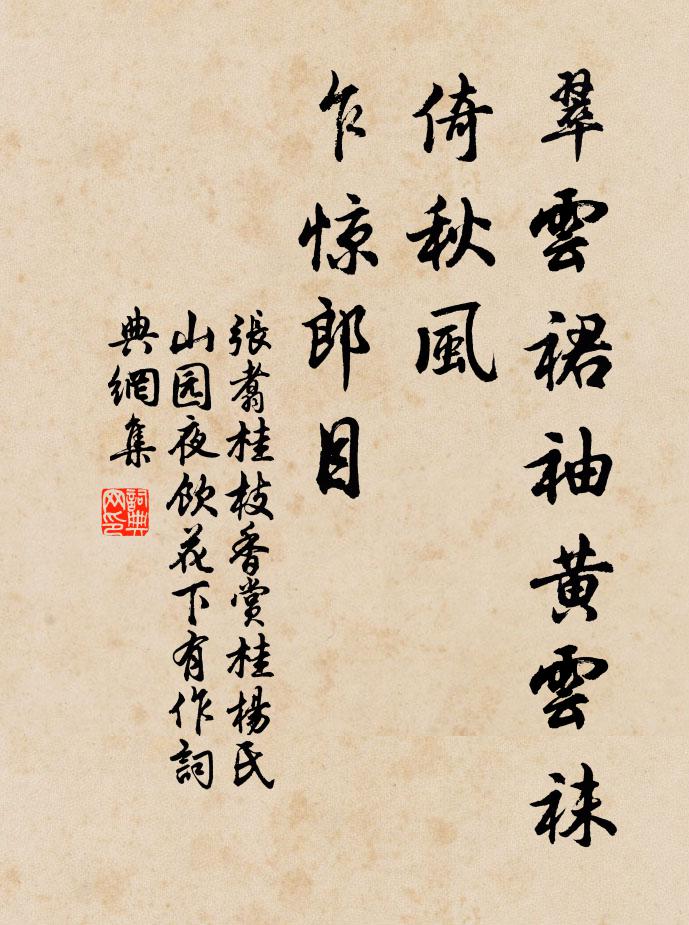 翠雲裙袖黄雲袜
倚秋風
乍惊郎目
張翥桂枝香赏桂楊氏
山园夜飲花下有作詞
典網集
詞典
网印